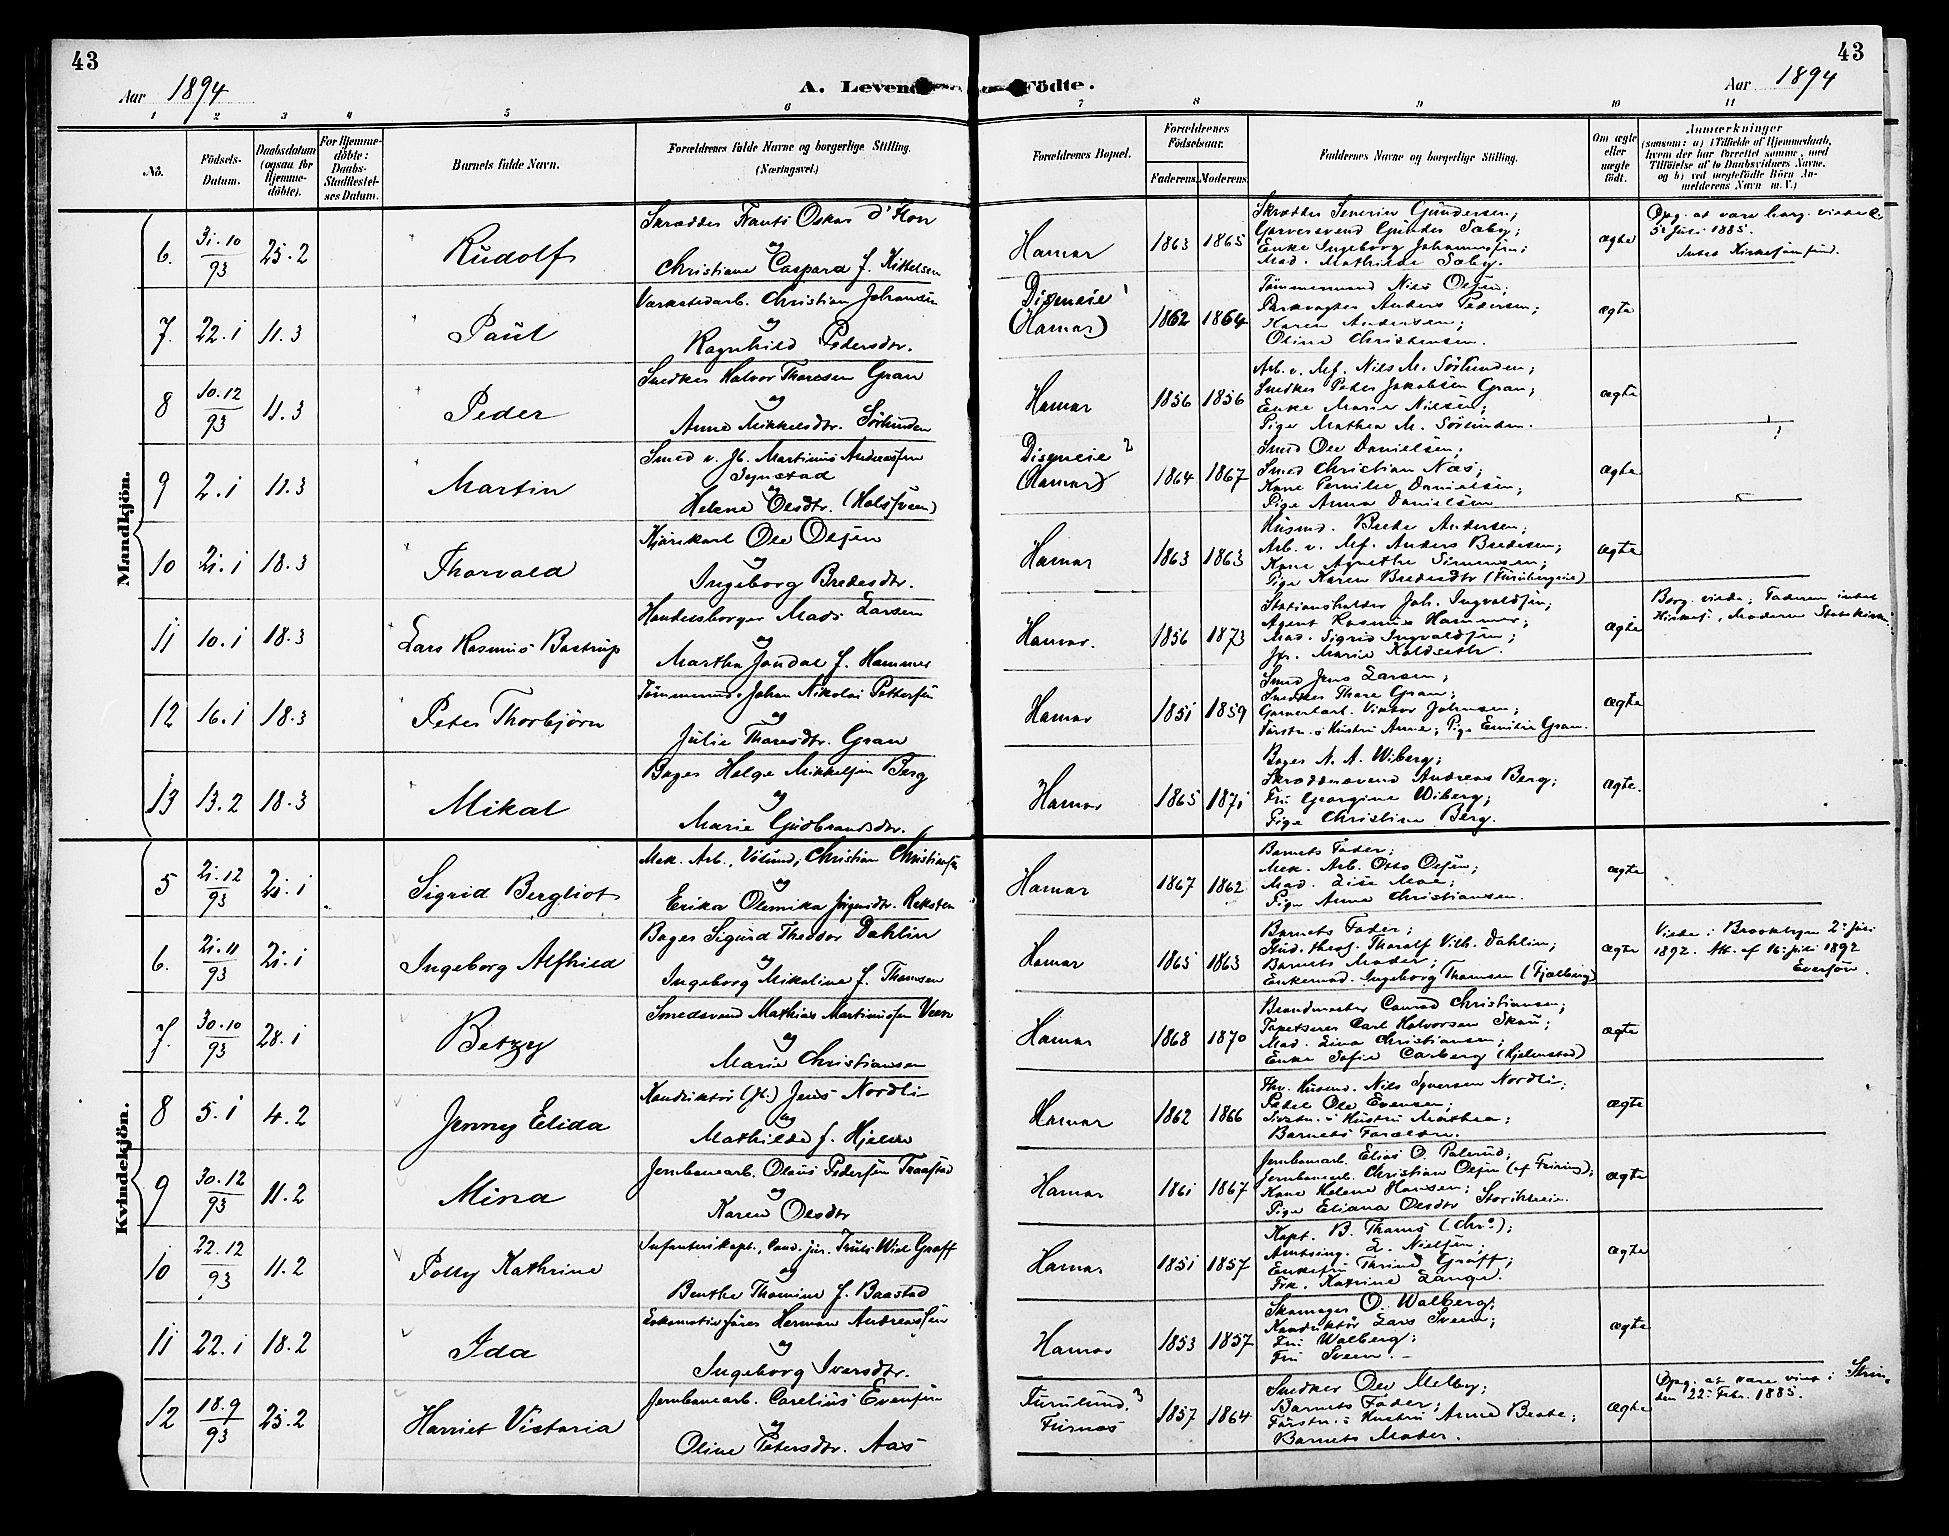 43
43
Aar 1894
A. Levende Födte.
Aar 1894
1 2 3 4 5 6 7 8 9 10 11
No.
Födsels-Datum.
Daabsdatum (ogsaa for Hjemmedöbte).
For Hjemmedöbte: Daabs-Stadfæstelses Datum.
Barnets fulde Navn.
Forældrenes fulde Navne og borgerlige Stilling. (Næringsvei.)
Forældrenes Bopæl.
Forældrenes Födselsaar.
Faderens. Moderens.
Faddernes Navne og borgerlige Stilling.
Om ægte eller uægte födt.
Anmærkninger (saasom: a) i Tilfælde af Hjemmedaab, hvem der har forrettet samme, med Tilföielse af to Daabsvidners Navne. og b) ved uægtefödte Börn Anmelderens Navn m. V.)
Mandkjön.
6. 31.10/93 25.2 Rudolf
Skrædder Frants Oskar d'Flon
og
Christiane Caspara f. Kittelsen
Hamar 1863 1865
Skrædder Severin Gundersen;
Garversvend Gunder Sæby;
Enke Ingeborg Johannessen;
Mad. Mathilde Sæby.
ægte
Opg. at være borg. viede
5te Juli 1885.
Intet Kirkesamfund.
7. 22.1 11.3 Paul
Værkstedarb. Christian Johansen
og
Ragnhild Pedersdtr.
Disgneie 1
(Hamar) 1862 1864
Tömmermand Nils Olsen;
Parkvogter Anders Pedersen;
Karen Andersen;
Oline Christensen.
ægte
8 10.12/93 11.3 Peder
Snedker Halvor Thoresen Gran
og
Anne Mikkelsdtr. Sörlunden
Hamar 1856 1856
Arb. v. Mf. Nils M. Sörlunden;
Snedker Peder Jakobsen Gran;
Enke Marie Nielsen;
Pige Mathea M. Sörlunden.
ægte
9 2.1 11.3 Martin
Smed v. Jb. Martinus Andreassen
og
Helene Olsdtr.
Disgneie 2
(Hamar) 1864 1867
Smed Ole Danielsen;
Smed Christian Næs;
Kone Pernille Danielsen;
Pige Anna Danielsen
ægte
10 21.1 18.3 Thorvald
Kjörekarl Ole Olsen
og
Ingeborg Bredesdtr.
Hamar 1863 1863
Husmd. Brede Andersen;
Arb. v. Mf. Anders Bredesen;
Kone Agnethe Simensen;
Pige Karen Bredesdtr
ægte
11 10.1 18.3 Lars Rasmus Bastrup
Handelsborger Mads Larsen
og
Martha Jondal f. Hammer
Hamar. 1856 1873
Stationsholder Joh. Ingvaldsen;
Agent Rasmus Hammer;
Mad. Sigrid Ingvaldsen;
Jfr. Marie Koldsethr.
ægte
Borg. viede; Faderen intet
Kirkesf., Moderen Statskirken
12 16.1 18.3 Peter Thorbjörn
Tömmermd. Johan Nikolai Pettersen
og
Julie Thoresdtr. Gran
Hamar 1851 1859
Smed Jens Larsen;
Snedker Thore Gran;
Garveriarb. Viktor Johnsen;
Förstn.s Hustru Anne; Pige Emilie Gran.
ægte
13 13.2 18.3 Mikal
Bager Helge Mikkelsen Berg
og
Marie Gudbrandsdtr.
Hamar 1865 1871
Bager N. A. Wiberg;
Skræddersvend Andreas Berg;
Fru Georgine Wiberg;
Pige Christine Berg.
ægte.
Kvindekjön.
5 21.12/93 21.1 Sigrid Bergliot
Mek. Arb., Christian Christiansen
og
Erika Olemika Jörgensdtr. Reksten
Hamar 1867 1862
Barnets Fader;
Mek. Arb. Otto Olsen;
Mad. Lise Moe;
Pige Anne Christiansen.
ægte
6. 21.11/93 21.1 Ingeborg Alfhild
Bager Sigurd Theodor Dahlin
og
Ingeborg Mikaline f. Thomsen
Hamar 1865 1863
Barnets Fader;
Stud. theol. Tharalf Vilh. Dahlin;
Barnets Moder;
Enkemad. Ingeborg Thomsen
ægte
Viede i Brooklyn 2. juli
1892. Att. af 16. juli 1892
7. 30.10/93 28.1 Betzy
Smedsvend Mathias Martinussen Veen
og
Marie Christiansen
Hamar 1868 1870
Brandmester Conrad Christiansen;
Tapetserer Carl Halvorsen Skou;
Mad. Lina Christiansen;
Enke Sofie Carberg (Hjelmstad)
ægte
8 5.1 4.2 Jenny Elida
Konduktör (Jb.) Jens Nordli
og
Mathilde f. Hjelm
Hamar 1862 1866
Fhv. Husmd. Nils Syversen Nordli;
Pedel Ole Evensen;
Sidstn.s Hustru Mathea;
Barnets Forældre.
ægte
9 30.12/93 11.2 Mina
Jernbanearb. Olaus Pedersen Traastad
og
Karen Olsdtr
Hamar 1861 1867
Jernbanearb. Elias O. Palerud;
Jernbanearb. Christian Olsen
Kone Helene Hansen;
Pige Eliana Olsdtr
ægte
10 22.12/93 11.2 Polly Kathrine
Infanterikapt., Cand. jur. Truls Wiel Graff
og
Benthe Thomine f. Baastad
Hamar 1851 1857
Kapt. B. Thams (Chr.a);
Amtsing. L. Nielsen;
Enkefru Thrine Graff;
Frk. Katrine Lange.
ægte
11 22.1 18.2 Ida
Lokomotivförer Herman Andreassen
og
Ingeborg Iversdtr.
Hamar 1853 1857
Skomager O. Walberg;
Konduktör Lars Sveen;
Fru Walberg;
Fru Sveen.
ægte
12 18.9/93 25.2 Harriet Victoria
Jernbanearb. Carelius Evensen
og
Oline Petersdtr. Aas
Furulund, 3
Furnes 1857 1864
Snedker Ole Melby;
Barnets Fader;
Förstn.s Hustru Anne Beate;
Barnets Moder.
ægte
Opg. at være viet i
den 22. Febr. 1885.